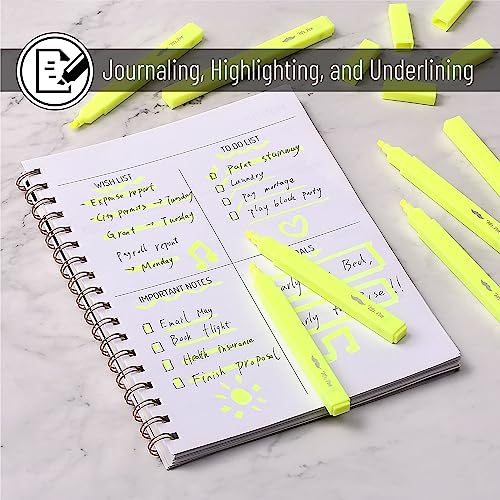 Journaling, Highlighting, and Underlining
WISH LIST
Expense report
City permits → Tuesday
Grant → Tuesday
Payroll report
→ Monday
TO DO LIST
Paint stairway
Laundry
Pay mortage
Play block party
IMPORTANT NOTES
Email May
Book flight
Health insurance
Finish proposal
ALS
Early
Bed,
early
ise!!
Mr. Pen
Mr. Pen
Mr. Pen
Mr. Pen